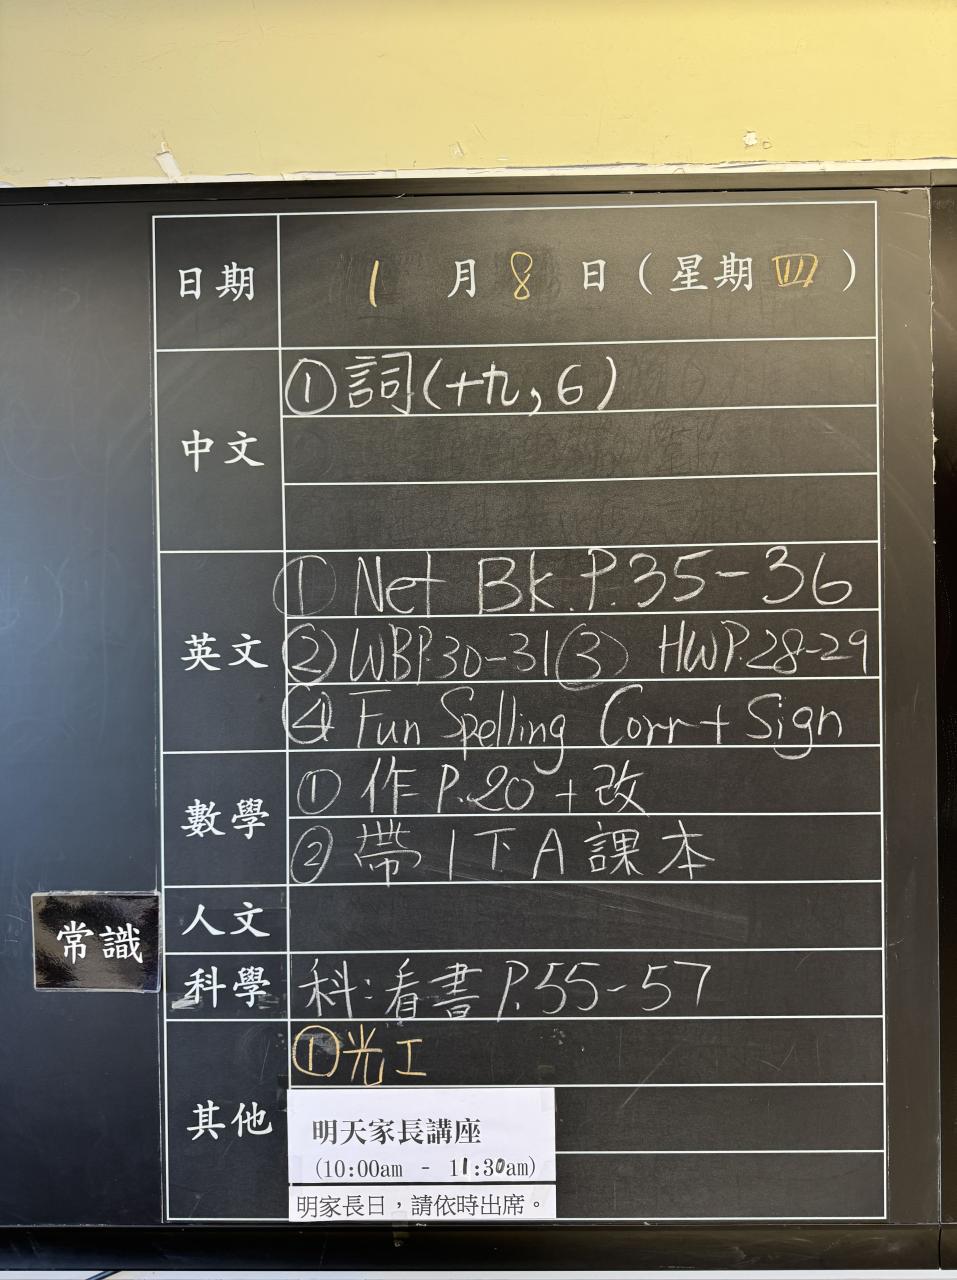 日期 1 月 8 日 (星期 四)
中文 ① 詞(十九, 6)
英文 ① Net Bk. P.35-36
② WB P.30-31 ③ HW P.28-29
④ Fun Spelling Corr + Sign
數學 ① 作 P.20 + 改
② 帶 1下A 課本
人文
常識
科學 科:看書 P.55-57
其他 ① 光工
明天家長講座
(10:00am - 11:30am)
明家長日,請依時出席。